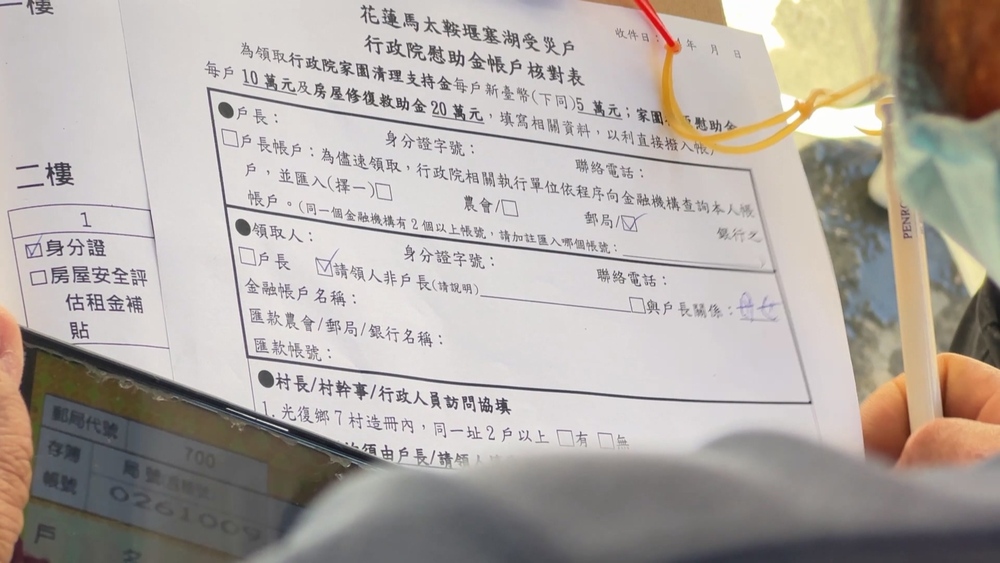 一樓
二樓
1
☑身分證
□房屋安全評
估租金補
貼
花蓮馬太鞍堰塞湖受災戶
行政院慰助金帳戶核對表
收件日: 年 月 日
為領取行政院家園清理支持金每戶新臺幣(下同)5 萬元；家園 慰助金
每戶 10 萬元及房屋修復救助金 20 萬元，填寫相關資料，以利直接撥入帳戶
●戶長： 身分證字號： 聯絡電話：
□戶長帳戶：為儘速領取，行政院相關執行單位依程序向金融機構查詢本人帳
戶，並匯入(擇一)□ 農會/□ 郵局/☑ 銀行之
帳戶。(同一個金融機構有 2 個以上帳號，請加註匯入哪個帳號：
●領取人： 身分證字號： 聯絡電話：
□戶長 ☑請領人非戶長(請說明) □與戶長關係：
金融帳戶名稱：
匯款農會/郵局/銀行名稱：
匯款帳號：
●村長/村幹事/行政人員訪問協填
1. 光復鄉 7 村造冊內，同一址 2 戶以上 □有 □無
須由戶長/請領人
PENRO
郵局代號 700
存簿
帳號
局 號
026100
戶 名